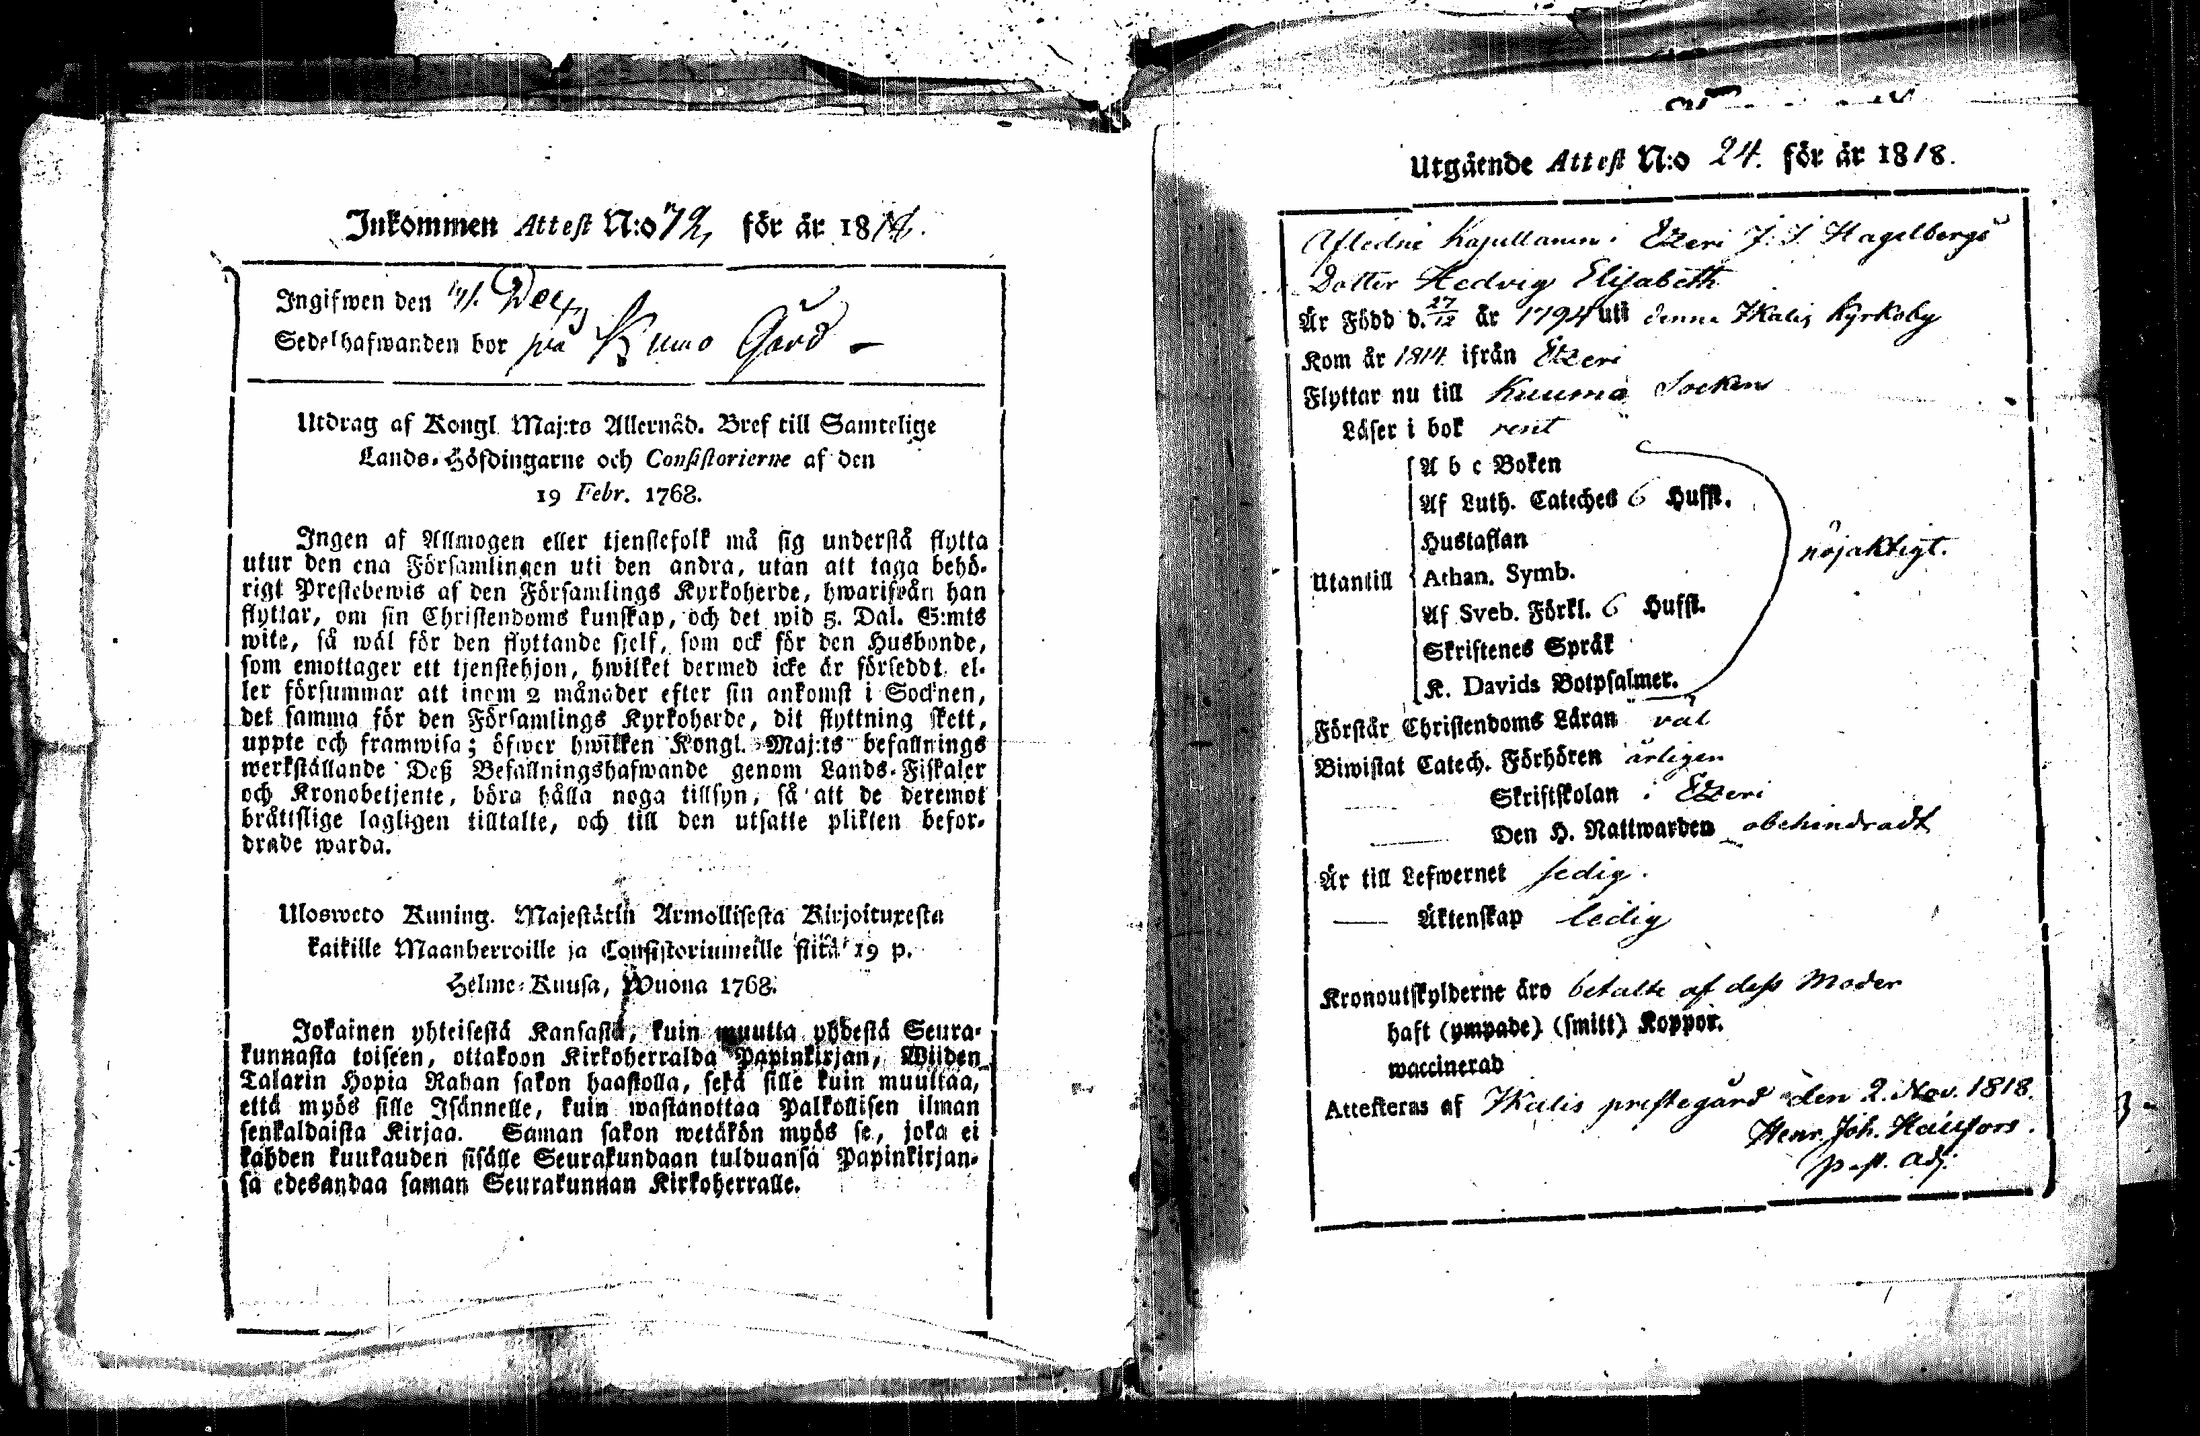 Inkommen Attest N:o 72, för år 1818.
Ingifwen den Decr
Sedelhafwanden bor på Kumo Gård –
Utdrag af Kongl. Maj:ts Allernåd. Bref till Samtelige
Lands-Höfdingarne och Consistorierne af den
19 Febr. 1768.
Ingen af Allmogen eller tjenstefolk må sig understå flytta
utur den ena Församlingen uti den andra, utan att taga behö-
rigt Prestebewis af den Församlings Kyrkoherde, hwarifrån han
flyttar, om sin Christendoms kunskap, och det wid 5. Dal. S:mts
wite, så wäl för den flyttande sjelf, som ock för den Husbonde,
som emottager ett tjenstehjon, hwilket dermed icke är förseddt, el-
ler försummar att inom 2 månader efter sin ankomst i Socknen,
det samma för den Församlings Kyrkoherde, dit flyttning skett,
uppte och framwisa; öfwer hwilken Kongl. Maj:ts befallnings
werkställande Deß Befallningshafwande genom Lands-Fiskaler
och Kronobetjente, böra hålla noga tillsyn, så att de deremot
bråttslige lagligen tilltalte, och till den utsatte plikten befor-
drade warda.
Ulosweto Kuning. Majestätin Armollisesta Kirjoituxesta
kaikille Maanherroille ja Consistoriumeille siitä 19 p.
Helme-Kuusa, Wuona 1768.
Jokainen yhteisestä Kansasta, kuin muutta yhdestä Seura-
kunnasta toiseen, ottakoon Kirkoherralda Papinkirjan, Wiiden
Talarin Hopia Rahan sakon haastolla, sekä sille kuin muuttaa,
että myös sille Isännelle, kuin wastanottaa Palkollisen ilman
senkaldaista Kirjaa. Saman sakon wetäkön myös se, joka ei
kahden kuukauden sisälle Seurakundaan tulduansa Papinkirjan-
sa edesandaa saman Seurakunnan Kirkoherralle.
Utgående Attest N:o 24. för år 1818.
Afledne Kapellanen i Etzeri J. J. Hagelbergs
Dotter Hedvig Elisabeth
Är Född d. 27/12 år 1794 uti denne Ikalis Kyrkoby
Kom år 1814 ifrån Etzeri
Flyttar nu till Kuumo Socken
Läser i bok rent
A b c Boken
Af Luth. Cateches 6 Hufst.
Hustaflan
Utantill Athan. Symb. nöjaktigt.
Af Sveb. Förkl. 6 Hufst.
Skriftenes Språk
K. Davids Botpsalmer.
Förstår Christendoms Läran väl
Biwistat Catech. Förhören årligen
Skriftskolan i Etzeri
Den H. Nattwarden obehindradt
Är till Lefwernet sedig.
— Äktenskap ledig
Kronoutskylderne äro betalte af dess Moder
haft (ympade) (smitt) Koppor.
waccinerad
Attesteras af Ikalis prestegård den 2. Nov. 1818.
Henr. Joh.
past. Adj.